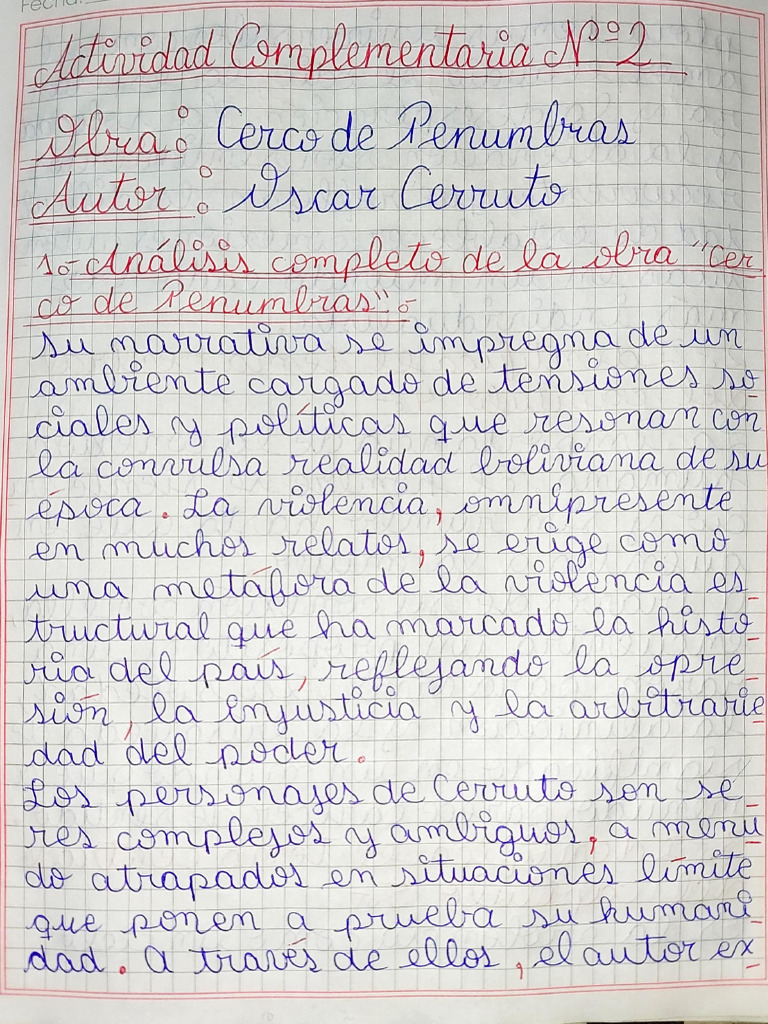 Fecha:
Actividad Complementaria Nº 2
Obra: Cerco de Penumbras
Autor: Oscar Cerruto
1.- Análisis completo de la obra "Cer
co de Penumbras".-
su narrativa se impregna de un
ambiente cargado de tensiones so_
ciales y políticas que resonan con
la convulsa realidad boliviana de su
época. La violencia, omnipresente
en muchos relatos, se erige como
una metáfora de la violencia es_
tructural que ha marcado la histo_
ria del país, reflejando la opre_
sión, la injusticia y la arbitrarie_
dad del poder.
Los personajes de Cerruto son se_
res complejos y ambiguos, a menu_
do atrapados en situaciones límite
que ponen a prueba su humani_
dad. a través de ellos, el autor ex_